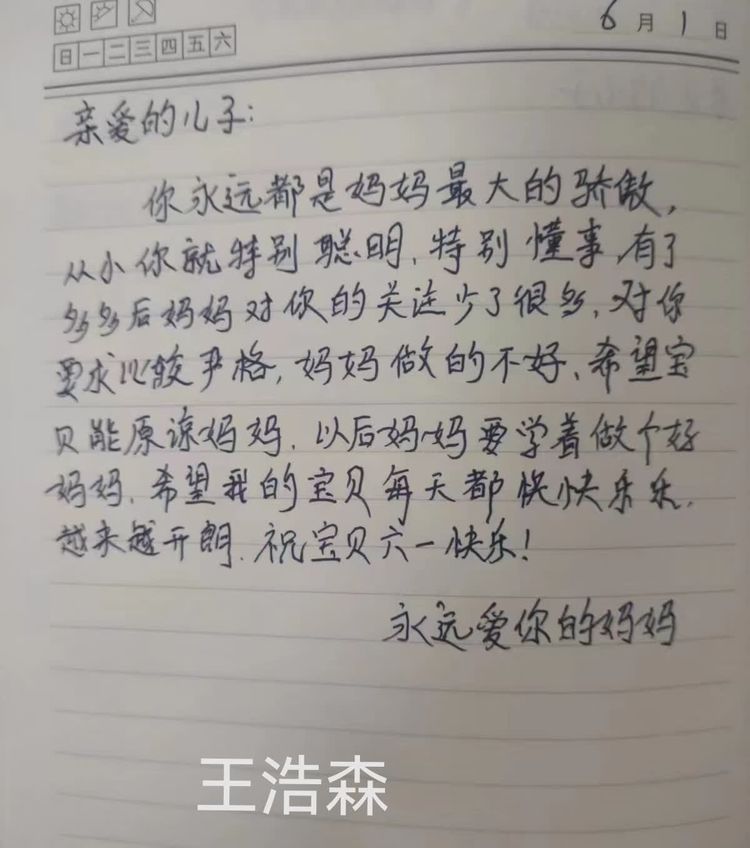 6月1日
日一二三四五六
亲爱的儿子:
你永远都是妈妈最大的骄傲,
从小你就特别聪明,特别懂事,有了
多多后妈妈对你的关注少了很多,对你
要求比较严格,妈妈做的不好,希望宝
贝能原谅妈妈,以后妈妈要学着做个好
妈妈,希望我的宝贝每天都快快乐乐,
越来越开朗,祝宝贝六一快乐!
永远爱你的妈妈
王浩森